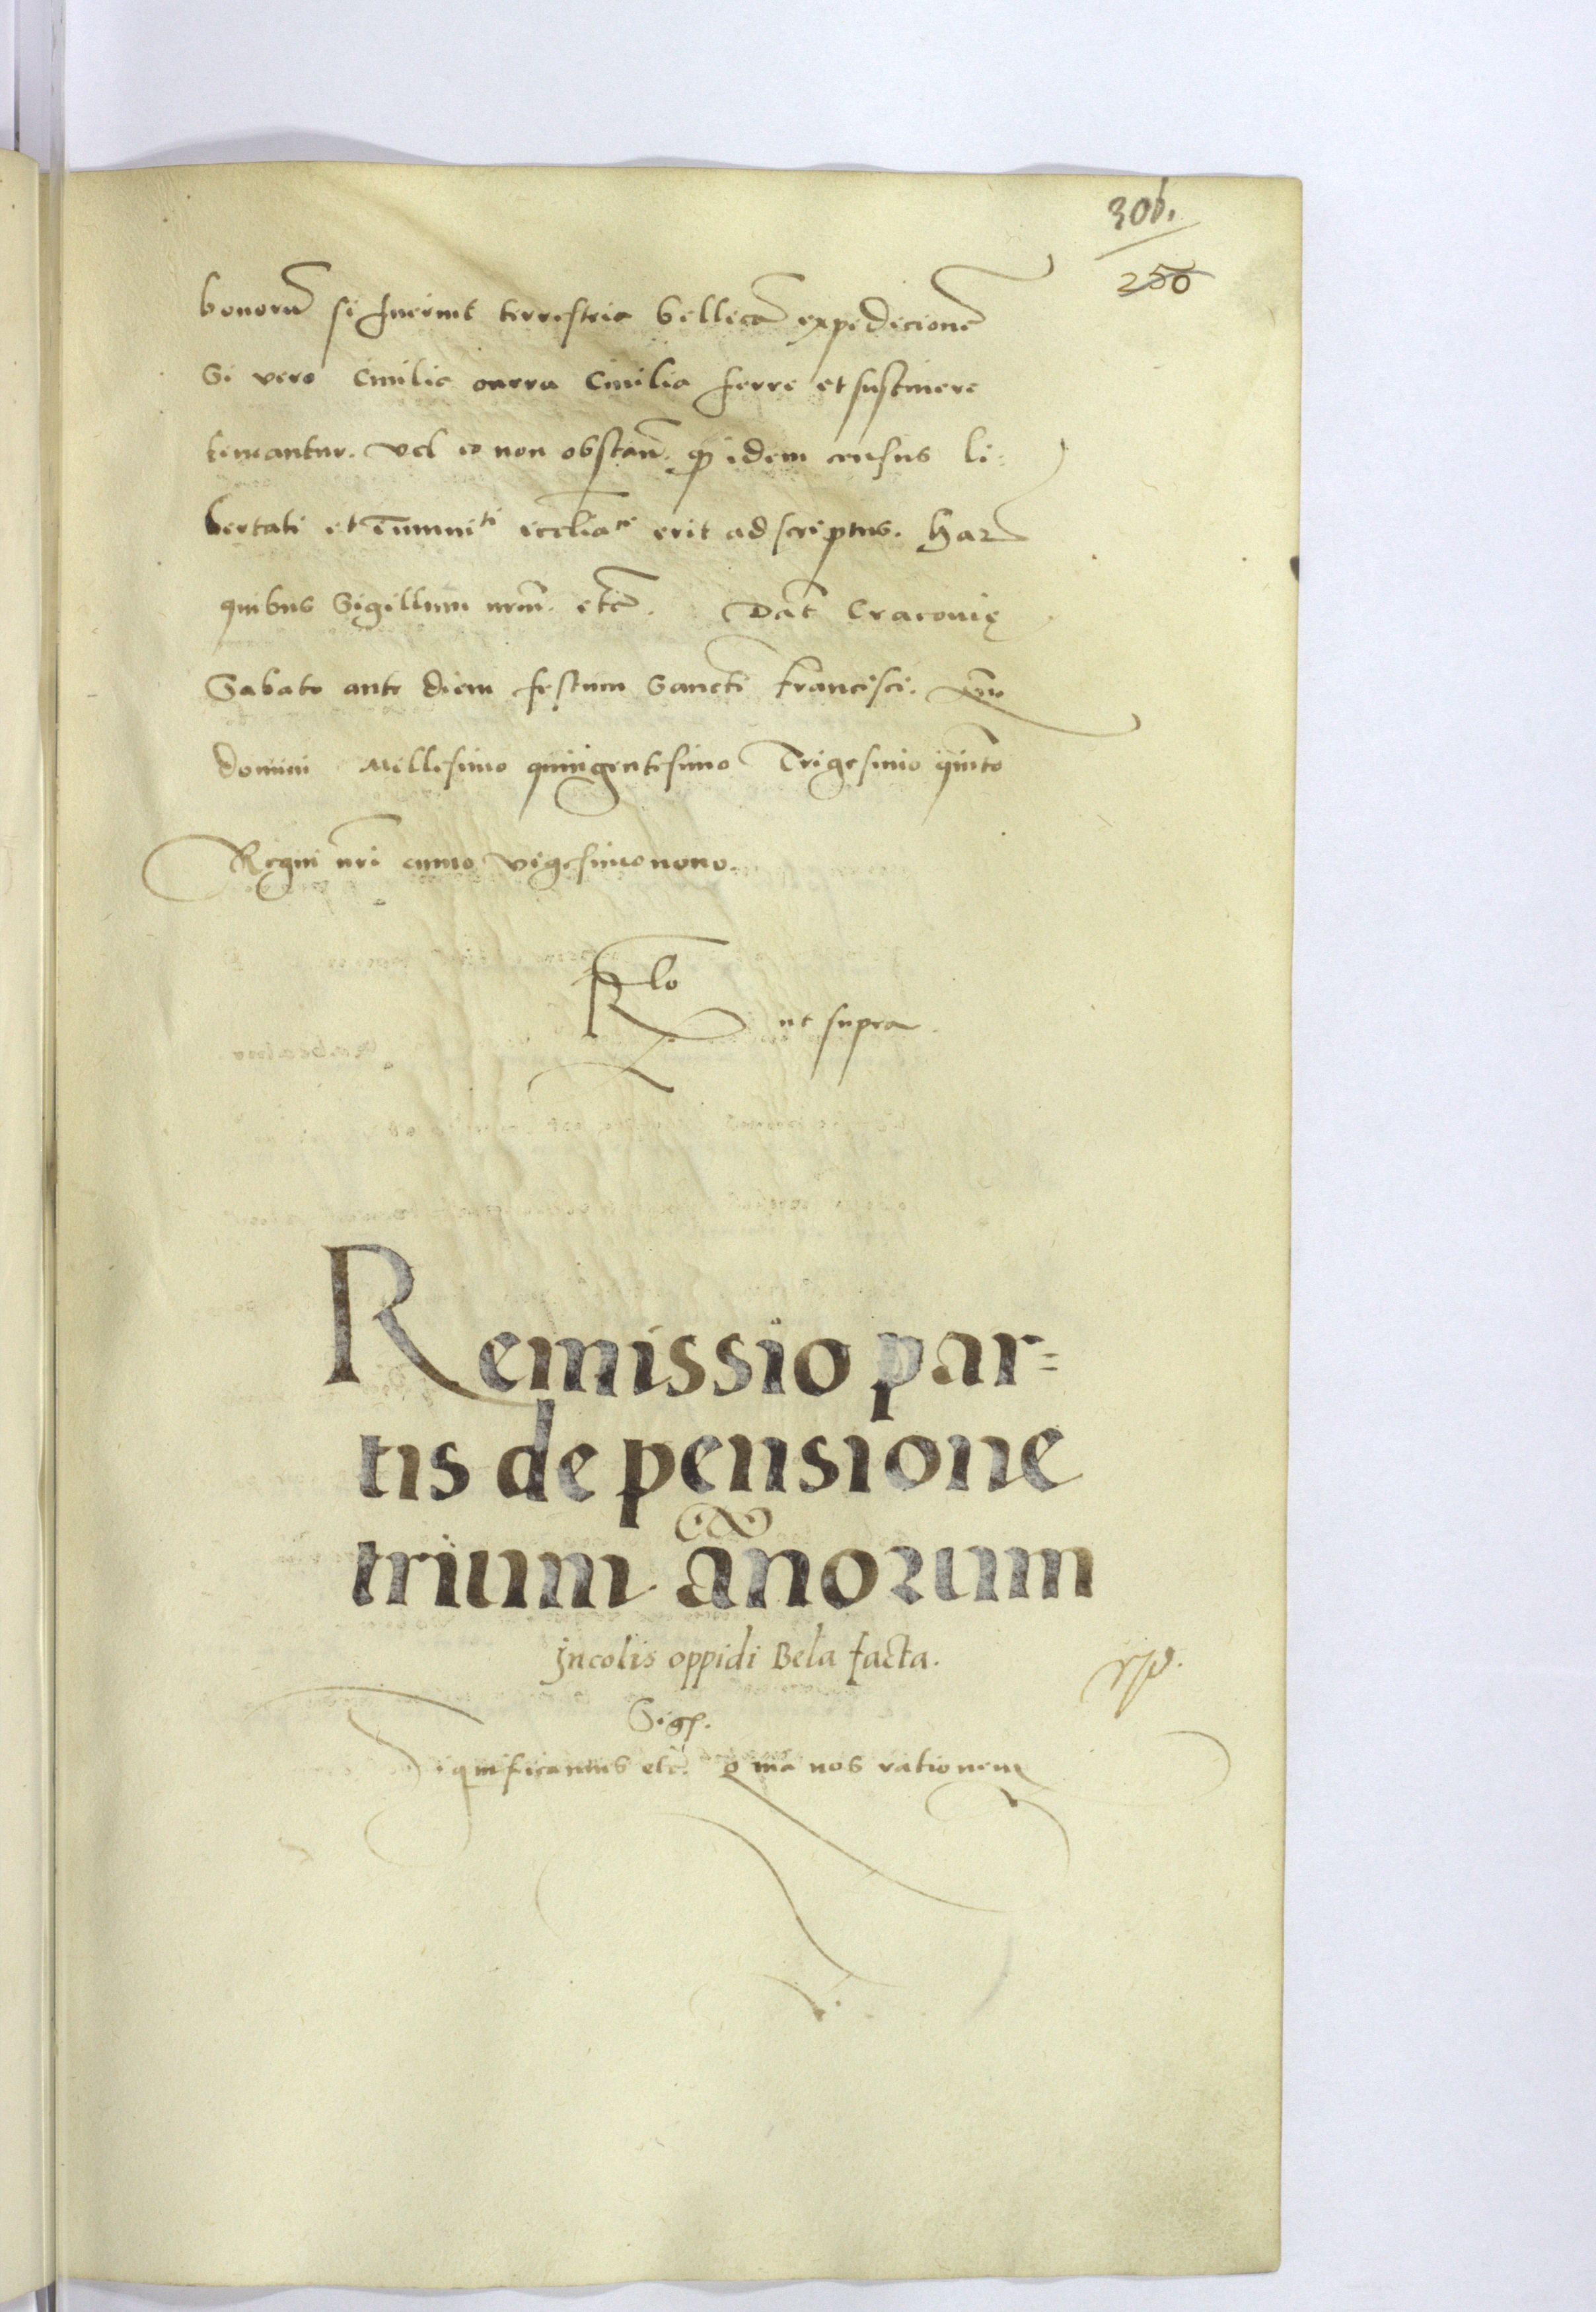 306.
250
bonorū si fuerint terrestria bellicā expedicionē
Si vero Ciuilia onera Ciuilia ferre et sustinere
teneantur. Vel eo non obstan̄. qp idem census li-
bertati et īmuniti eccliati erit adscriptus. har
quibus Sigillum nrm̄. etc̄. Dat̄ Cracovię
Sabato ante diem festum Sancti francisci. Ann̄
domini Millesimo quingentesimo Trigesimo quīto
Regni nrī anno vigesimonono.
Rlo
ut supra.
Remissio par=
tis de pensione
trium ānorum
Jncolis oppidi Bela facta.
Sigs.
Significamus etc̄. q̄ nos rationem